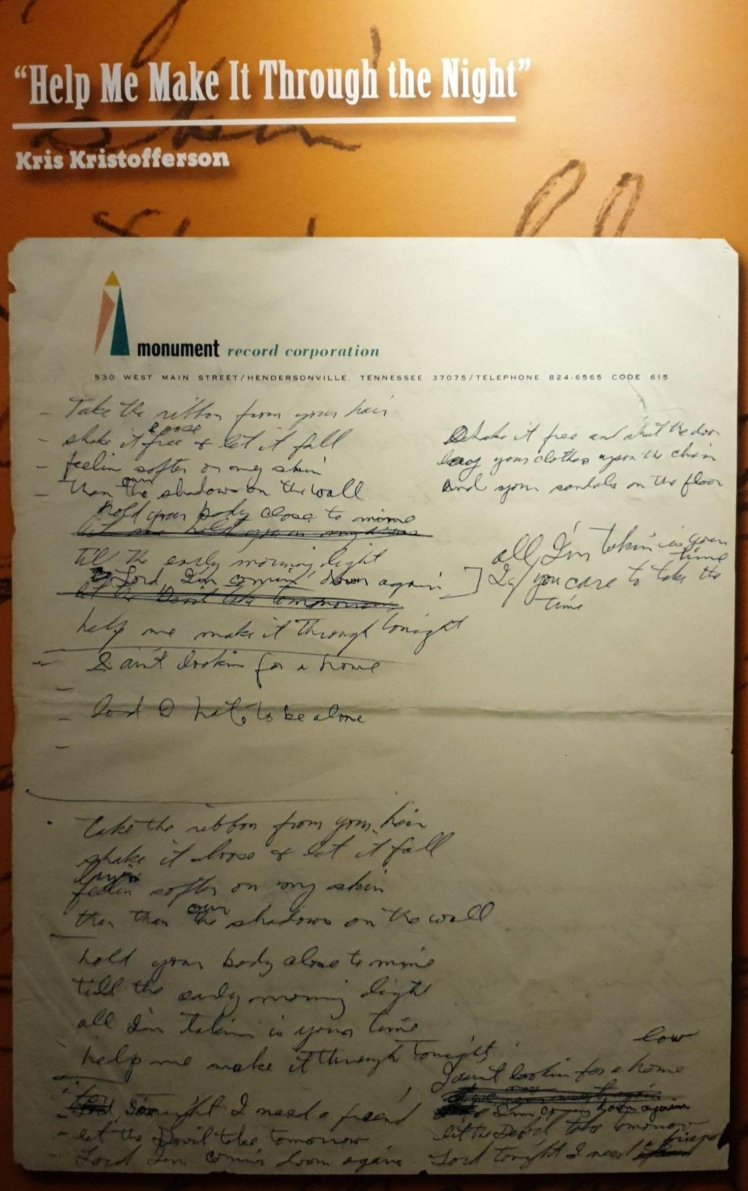 “Help Me Make It Through the Night”
Kris Kristofferson
monument record corporation
530 WEST MAIN STREET/HENDERSONVILLE, TENNESSEE 37075/TELEPHONE 824-6565 CODE 615
- Take the ribbon from your hair
loose
- shake it free & let it fall
- feelin softer on my skin
- than the shadows on the wall
hold your body close to mine
till the early morning light
Lord, I'm comin' down again
let the Devil take tomorrow
help me make it through tonight
- I ain't lookin for a home
-
- lord I hate to be alone
-
shake it free and shut the door
lay your clothes upon the chair
and your sandals on the floor
all I'm takin' is your
time
If you care to take the
time
take the ribbon from your hair
shake it loose & let it fall
layin
feelin softer on my skin
our
then than the shadows on the wall
hold your body close to mine
till the early morning light
all I'm takin is your time
help me make it through tonight
tonight I need a friend
- let the Devil take tomorrow
- Lord I'm comin down again
low
I aint lookin for a home
I'm comin down again
let the Devil take tomorrow
Lord tonight I need a friend